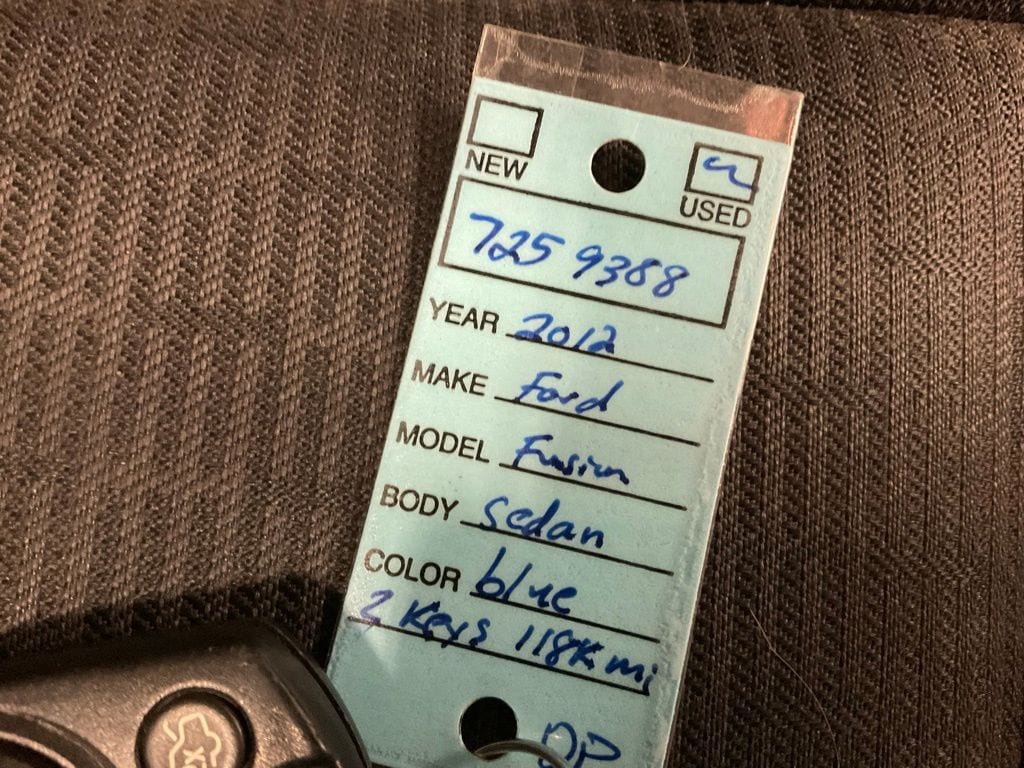 NEW
USED
725 9388
YEAR 2012
MAKE Ford
MODEL Fusion
BODY Sedan
COLOR blue
2 Keys 118K mi
DP